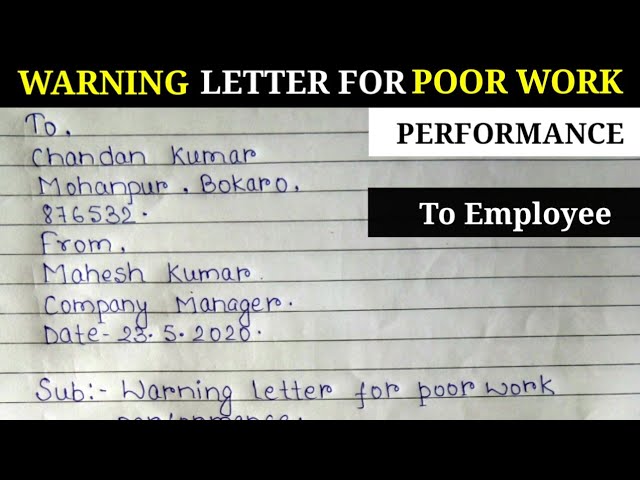 WARNING LETTER FOR POOR WORK
PERFORMANCE
To Employee
To,
Chandan Kumar
Mohanpur, Bokaro,
876532.
From,
Mahesh Kumar
Company Manager.
Date- 23.5.2020.
Sub:- Warning letter for poor work
performance.